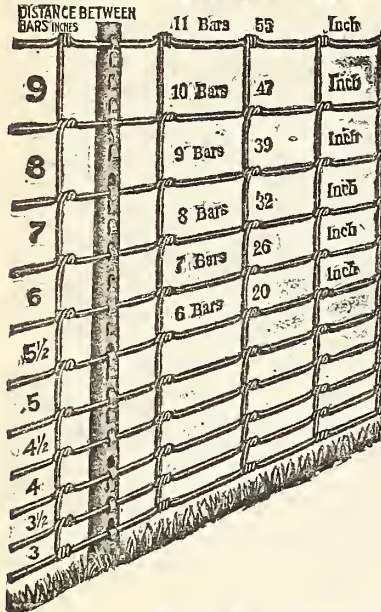 DISTANCE BETWEEN
BARS INCHES
9
8
7
6
5½
5
4½
4
3½
3
11 Bars 55 Inch
10 Bars 47 Inch
9 Bars 39 Inch
8 Bars 32 Inch
7 Bars 26 Inch
6 Bars 20 Inch